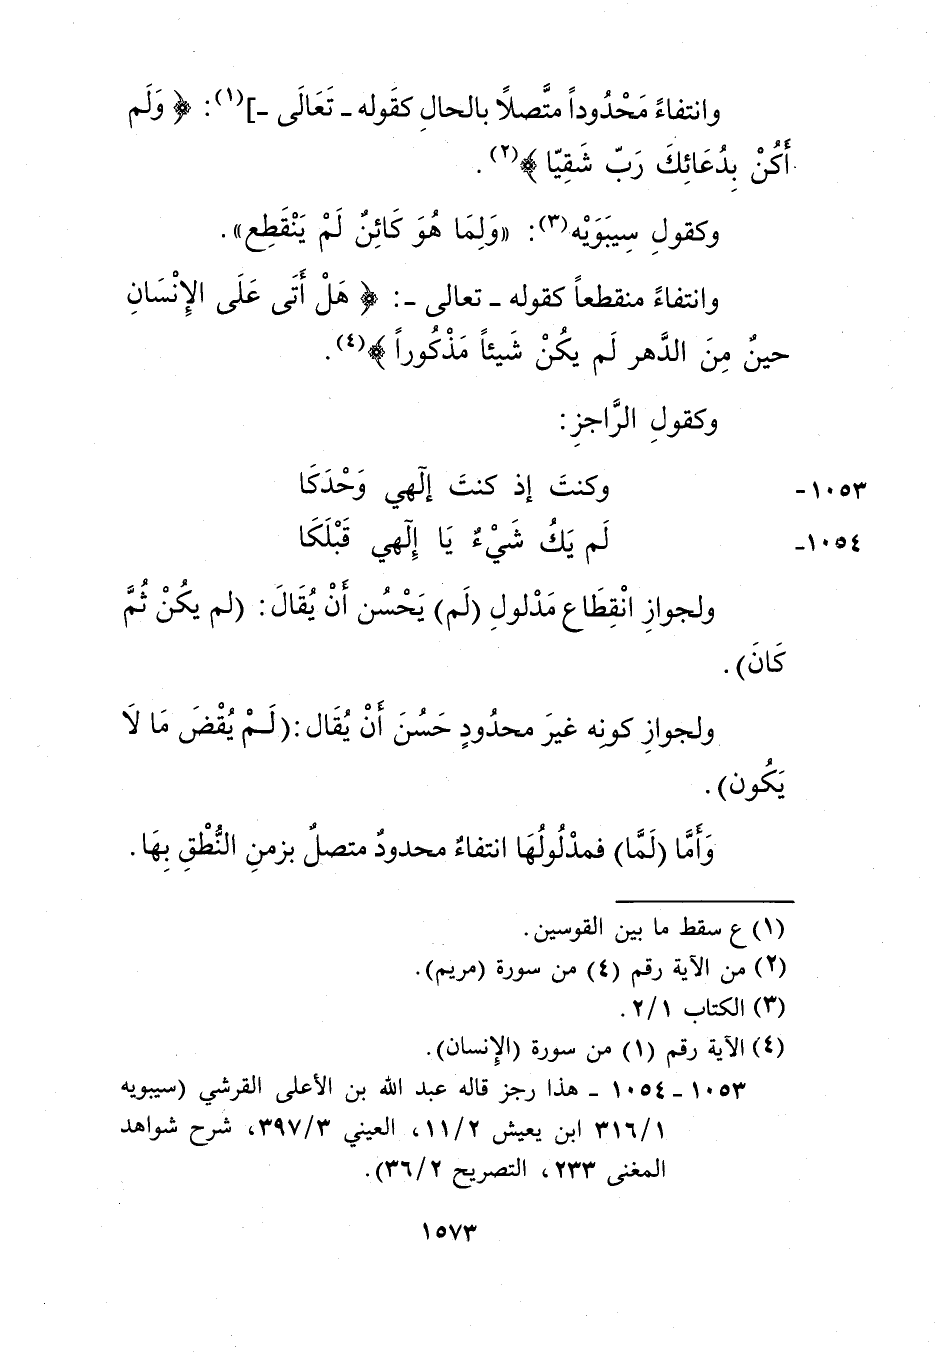 وانتفاءً مَحْدُوداً متَّصلًا بالحالِ كقَوله ـ تَعَالَى ـ](١): ﴿ وَلَم
أَكُنْ بِدُعَائِكَ رَبِّ شَقِيّا ﴾(٢).
وكقولِ سِيبَوَيْهِ(٣): «وَلِمَا هُوَ كَائِنٌ لَمْ يَنْقَطِع».
وانتفاءً منقطعاً كقوله ـ تعالى ـ: ﴿ هَلْ أَتَى عَلَى الإِنْسَانِ
حينٌ مِنَ الدَّهر لَم يكُنْ شَيئاً مَذْكُوراً ﴾(٤).
وكقولِ الرَّاجزِ:
١٠٥٣- وكنتَ إذ كنتَ إلٓهي وَحْدَكَا
١٠٥٤- لَم يَكُ شَيْءٌ يَا إِلٓهي قَبْلَكَا
ولجوازِ انْقِطَاعِ مَدْلولِ (لَم) يَحْسُن أَنْ يُقَالَ: (لم يكُنْ ثُمَّ
كَانَ).
ولجوازِ كونِه غيرَ محدُودٍ حَسُنَ أَنْ يُقَال:(لَـمْ يُقْضَ مَا لَا
يَكُون).
وَأَمَّا (لَمَّا) فمدْلُولُهَا انتفاءٌ محدودٌ متصلٌ بزمنِ النُّطْقِ بِهَا.
(١) ع سقط ما بين القوسين.
(٢) من الآية رقم (٤) من سورة (مريم).
(٣) الكتاب ٢/١.
(٤) الآية رقم (١) من سورة (الإنسان).
١٠٥٣ ـ ١٠٥٤ ـ هذا رجز قاله عبد الله بن الأعلى القرشي (سيبويه
٣١٦/١ ابن يعيش ١١/٢، العيني ٣٩٧/٣، شرح شواهد
المغنى ٢٣٣، التصريح ٣٦/٢).
١٥٧٣